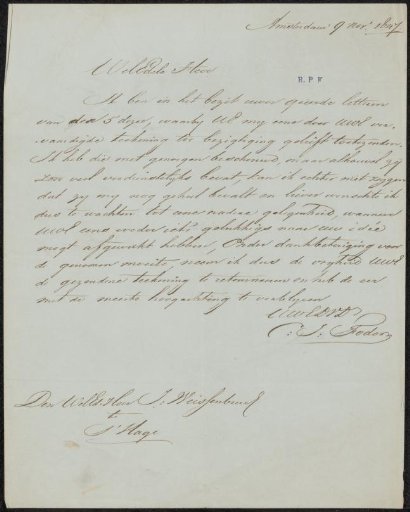 Amsterdam 9 Nov. 1847
WelEdele Heer
R.P.K
Ik ben in het bezit uwer geeerde letteren
van den 5 dezer, waarby UE my eene door UWE ver-
vaardigde teekening ter bezigtiging gelieft toetezenden.
Ik heb die met genoegen beschouwd, maar alhoewel zy
zeer veel verdienstelyks bevat, kan ik echter niet zeggen
dat zy my nog geheel bevalt en liever wenschte ik
dus te wachten tot eene nadere gelegenheid, wanneer
UWE eens weder iets gelukkigs naar uw idée
mogt afgewerkt hebben, onder dankbetuiging voor
de genomen moeite, neem ik dus de vryheid UWE
de gezondene teekening te retourneeren en heb de eer
met de meeste hoogachting te verblyven
UWEDVD
C: J: Fodor
Den WelEd. Heer J. Weissenbruch
te
s'Hage